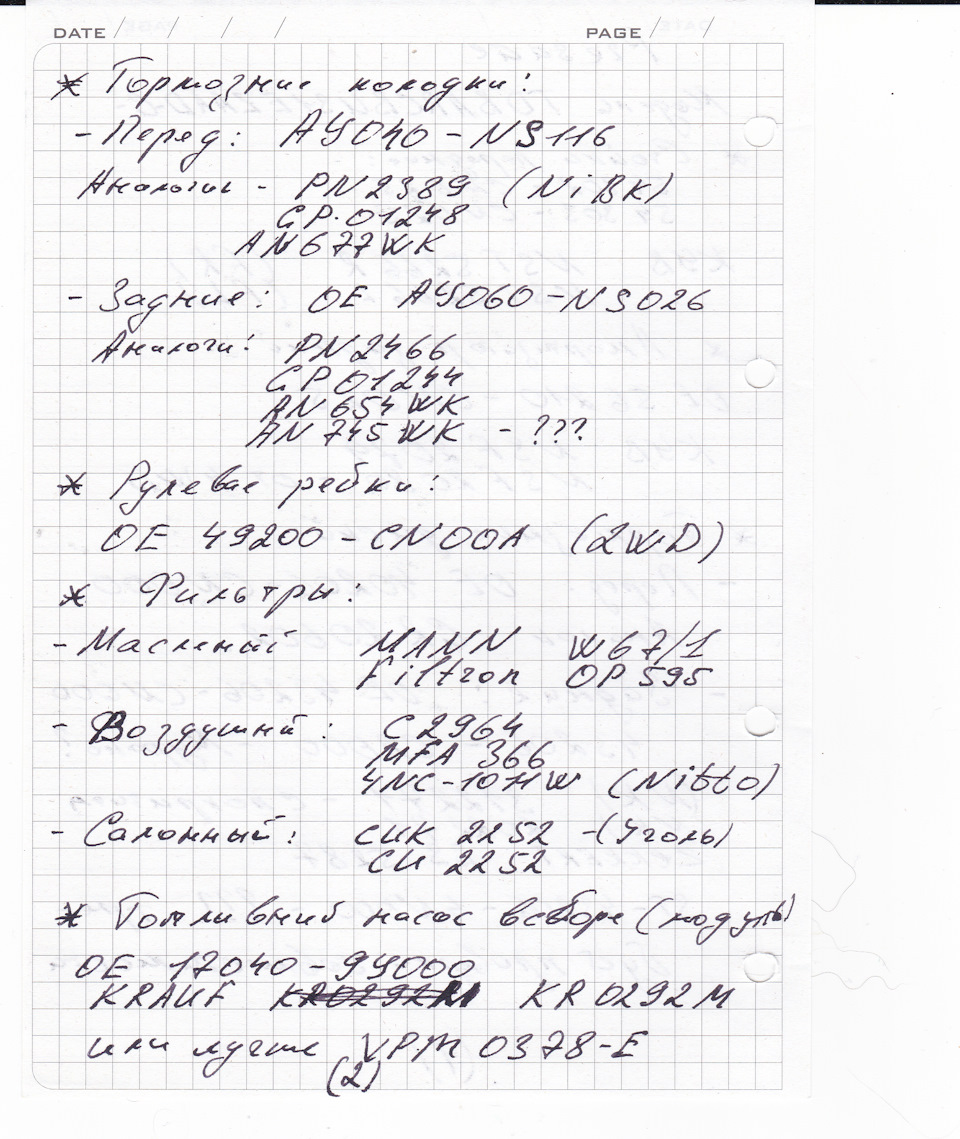 DATE / / / / PAGE / /
* Тормозние колодки:
- Перед: AY040 - NS116
Аналогии - PN2389 (NiBK)
GP.01248
AN677WK
- Задние: OE AY060-NS026
Аналоги: PN2466
GP01244
AN654WK
AN745WK - ???
* Рулевае рейки:
OE 49200-CN00A (2WD)
* Фильтры:
- Масленый MANN W67/1
Filtron OP595
- Воздушний: C2964
MFA 366
4NC-1011W (Nitto)
- Салонный: CUK 2252 -(Уголь)
CU 2252
* Топливний насос всборе (модуль)
OE 17040-9Y000
KRAUF KR0292M KR0292M
или лучше VPM 0378-E
(2)